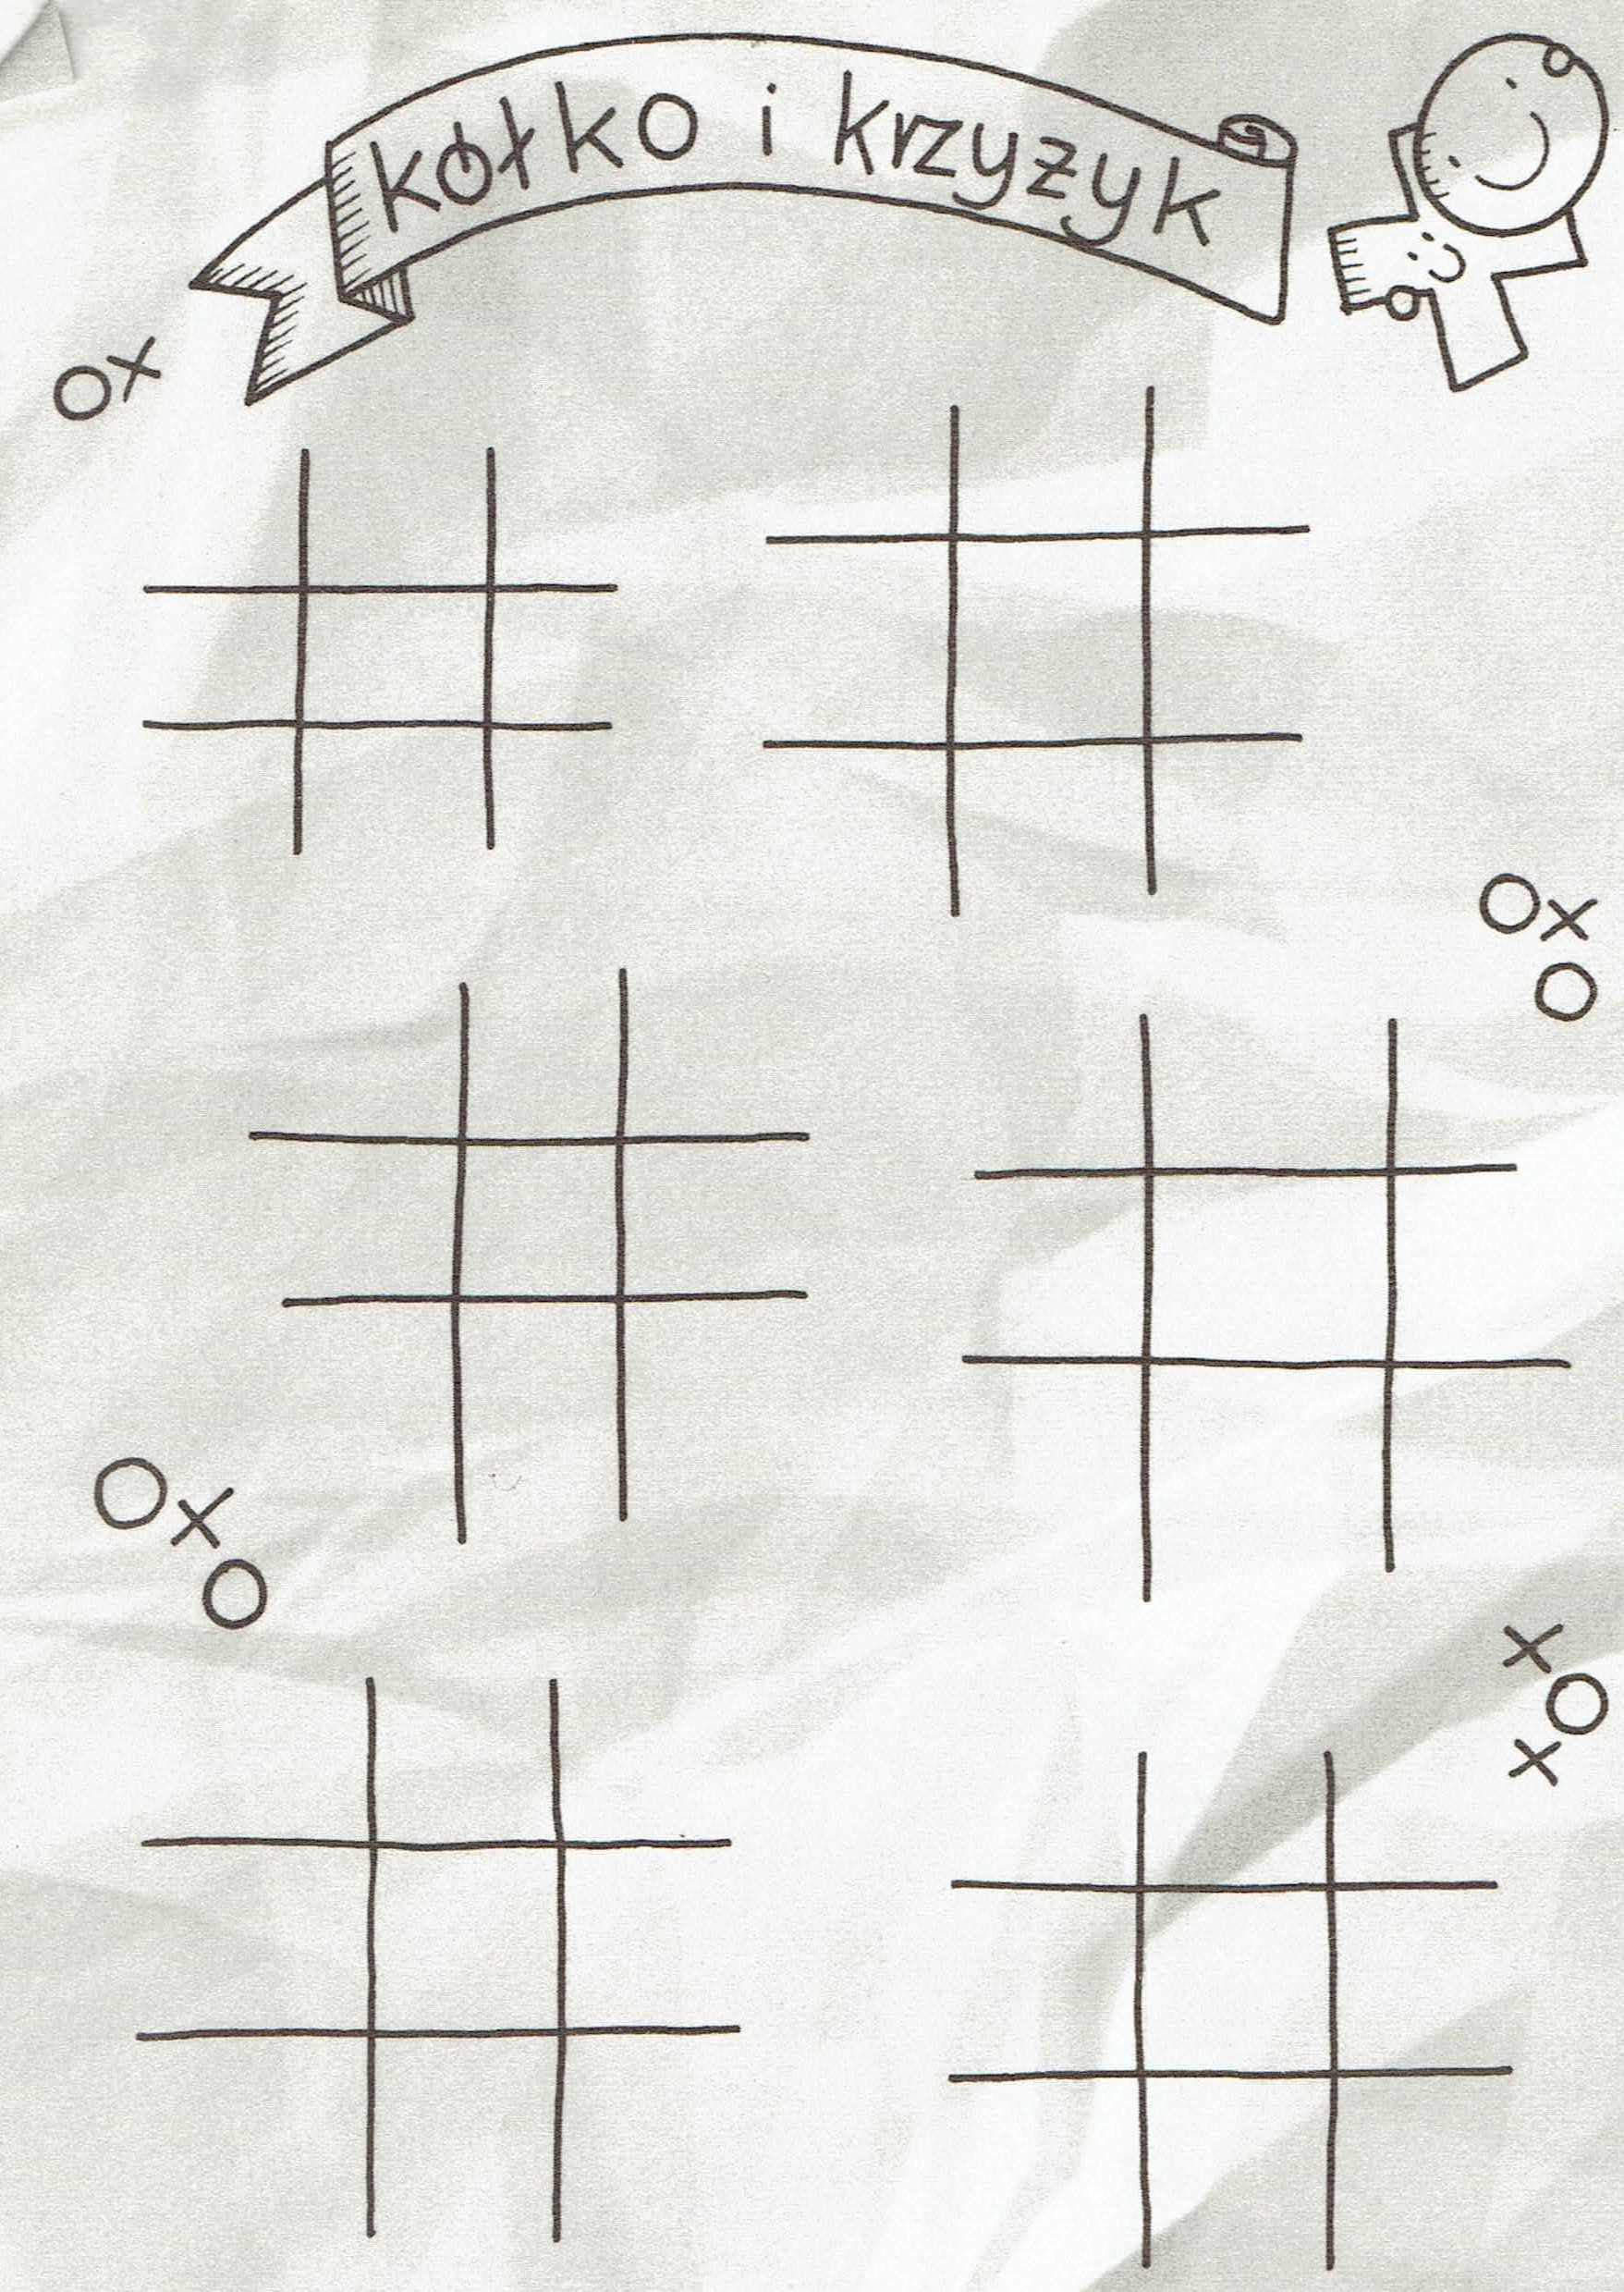 kółko i krzyżyk
OX
OX
O
OX
O
X
O
X